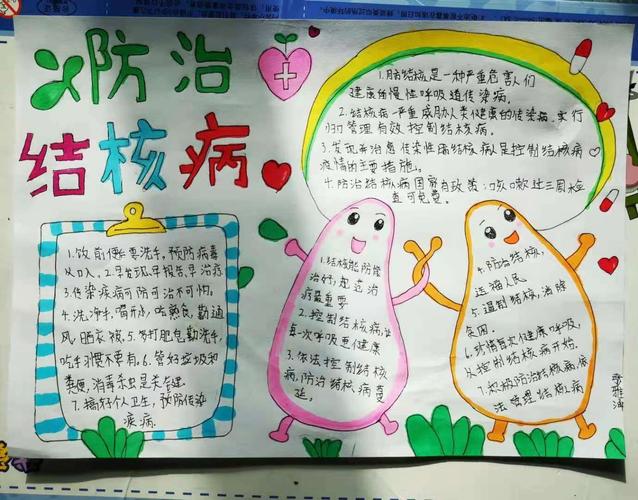 防治
结核病
1.肺结核是一种严重危害人们
健康的慢性呼吸道传染病。
2.结核病严重威胁人类健康的传染病,实行
归口管理有效控制结核病。
3.发现并治愈传染性肺结核病人是控制结核病
疫情的主要措施。
4.防治结核病国家有政策:咳嗽过三周检
查可免费。
1.饭前便后要洗手,预防病毒
从口入。2.早发现早报告早治疗
3.传染疾病可防可治不可怕。
4.洗净手,喝开水,吃熟食,勤通
风,晒衣被。5.打肥皂勤洗手,
吃手习惯不要有。6.管好垃圾和
粪便,消毒杀虫是关键。
7.搞好个人卫生,预防传染
疾病。
1.结核能防能
治好,规范治
疗最重要
2.控制结核病,让
每一次呼吸更健康
3.依法控制结核
病,防治结核病蔓
延。
4.防治结核,
造福人民
5.遏制结核,消除
贫困。
6.珍惜每次健康呼吸,
从控制结核病开始。
7.积极防治结核病,依
法管理结核病